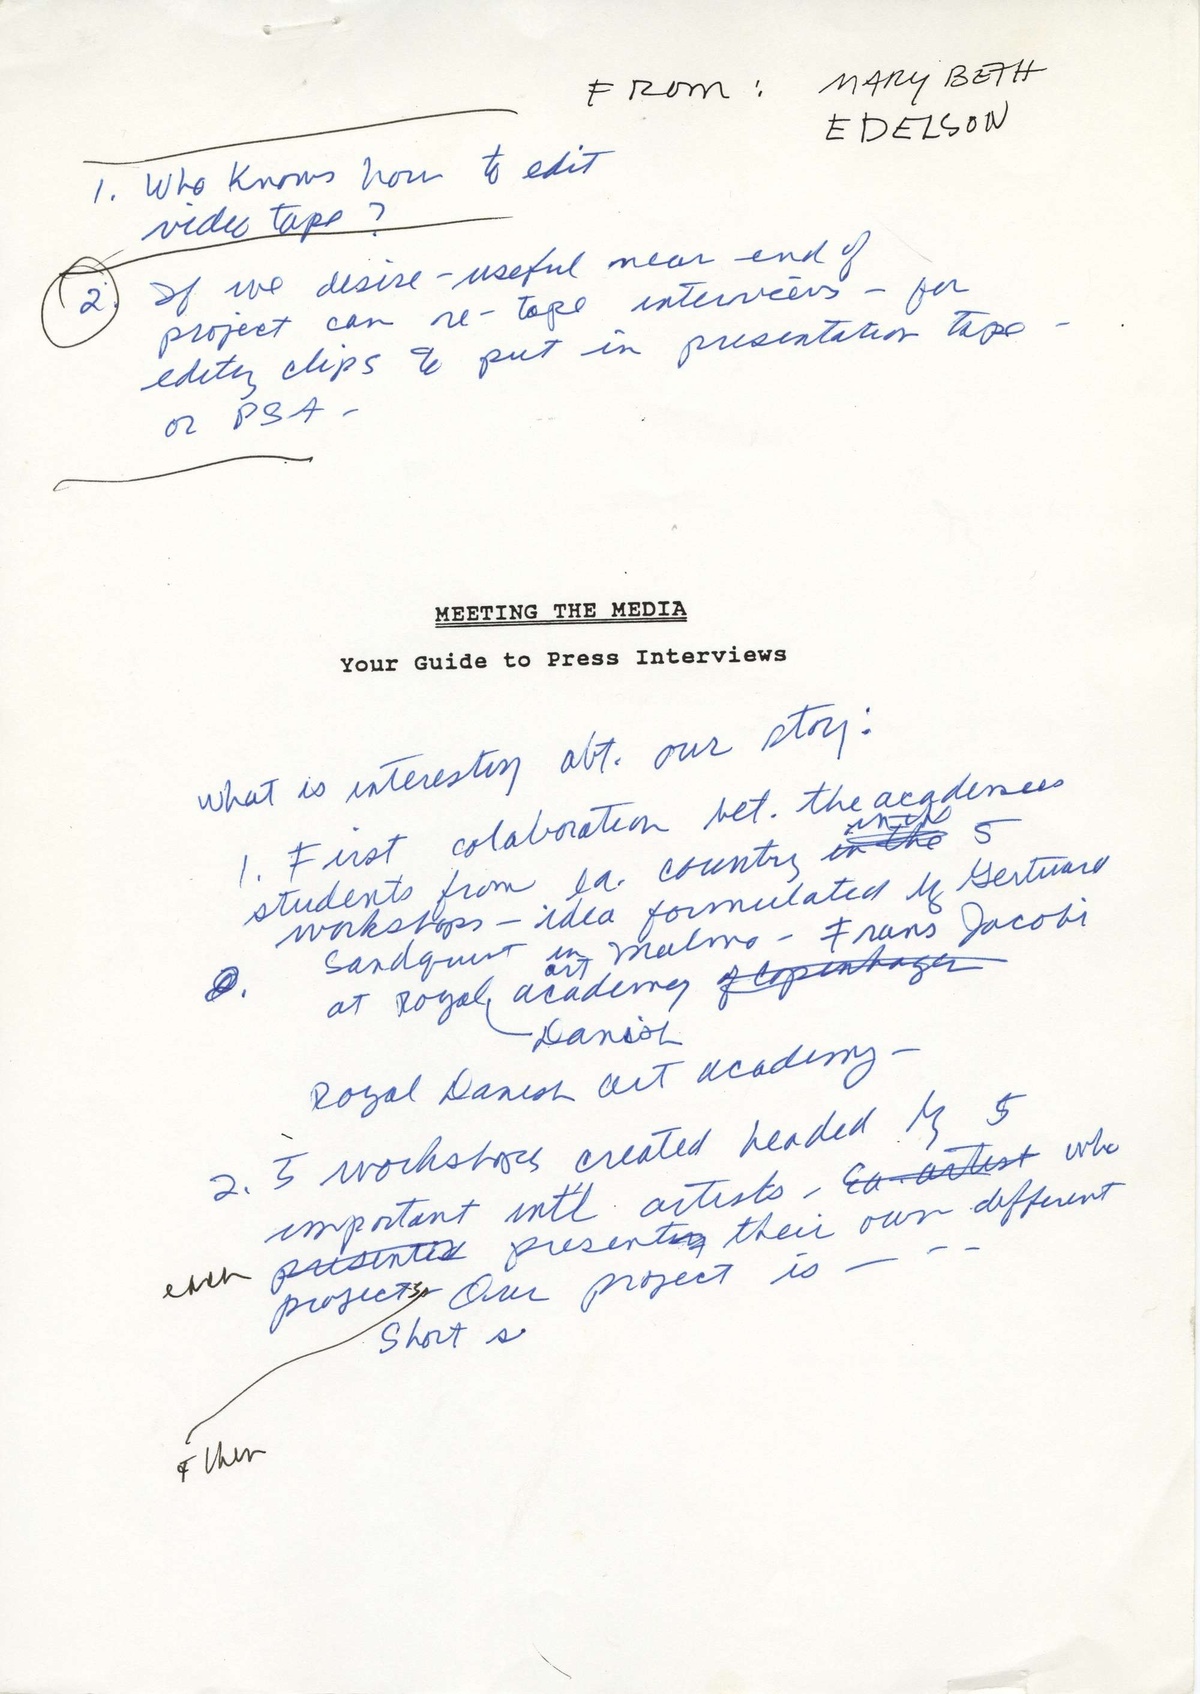 FROM: MARY BETH
EDELSON
1. Who knows how to edit
video tape?
2. If we desire - useful near end of
project can re-tape interviews - for
editing clips to put in presentation tape -
or PSA -
MEETING THE MEDIA
Your Guide to Press Interviews
What is interesting abt. our story:
1. First colaboration bet. the academies
students from ea. country in the 5
workshops - idea formulated by Gertuard
Sandquist in Malmo - Frans Jacobi
at Royal art academy of Copenhagen
Danish
Royal Danish art academy -
2. 5 workshops created headed by 5
important int'l artists, Ea. artist who
each presented presenting their own different
projects Our project is - - -
Short s
& then